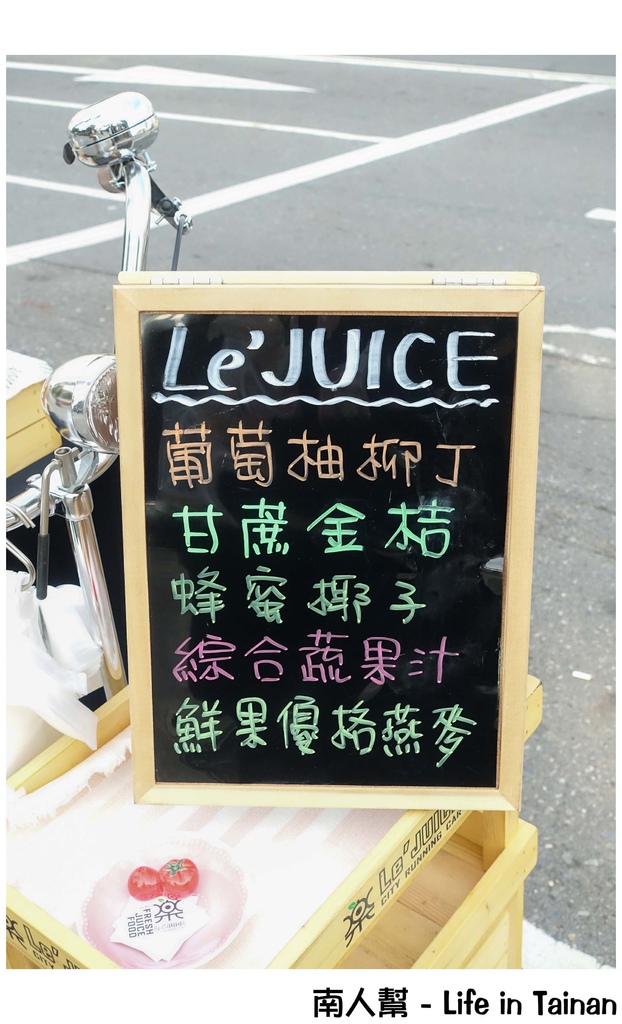 Le'JUICE
葡萄柚柳丁
甘蔗金桔
蜂蜜椰子
綜合蔬果汁
鮮果優格燕麥
Le'JUICE
CITY RUNNING CAR
FRESH
JUICE
FOOD
樂 Le'JU
南人幫 - Life in Tainan